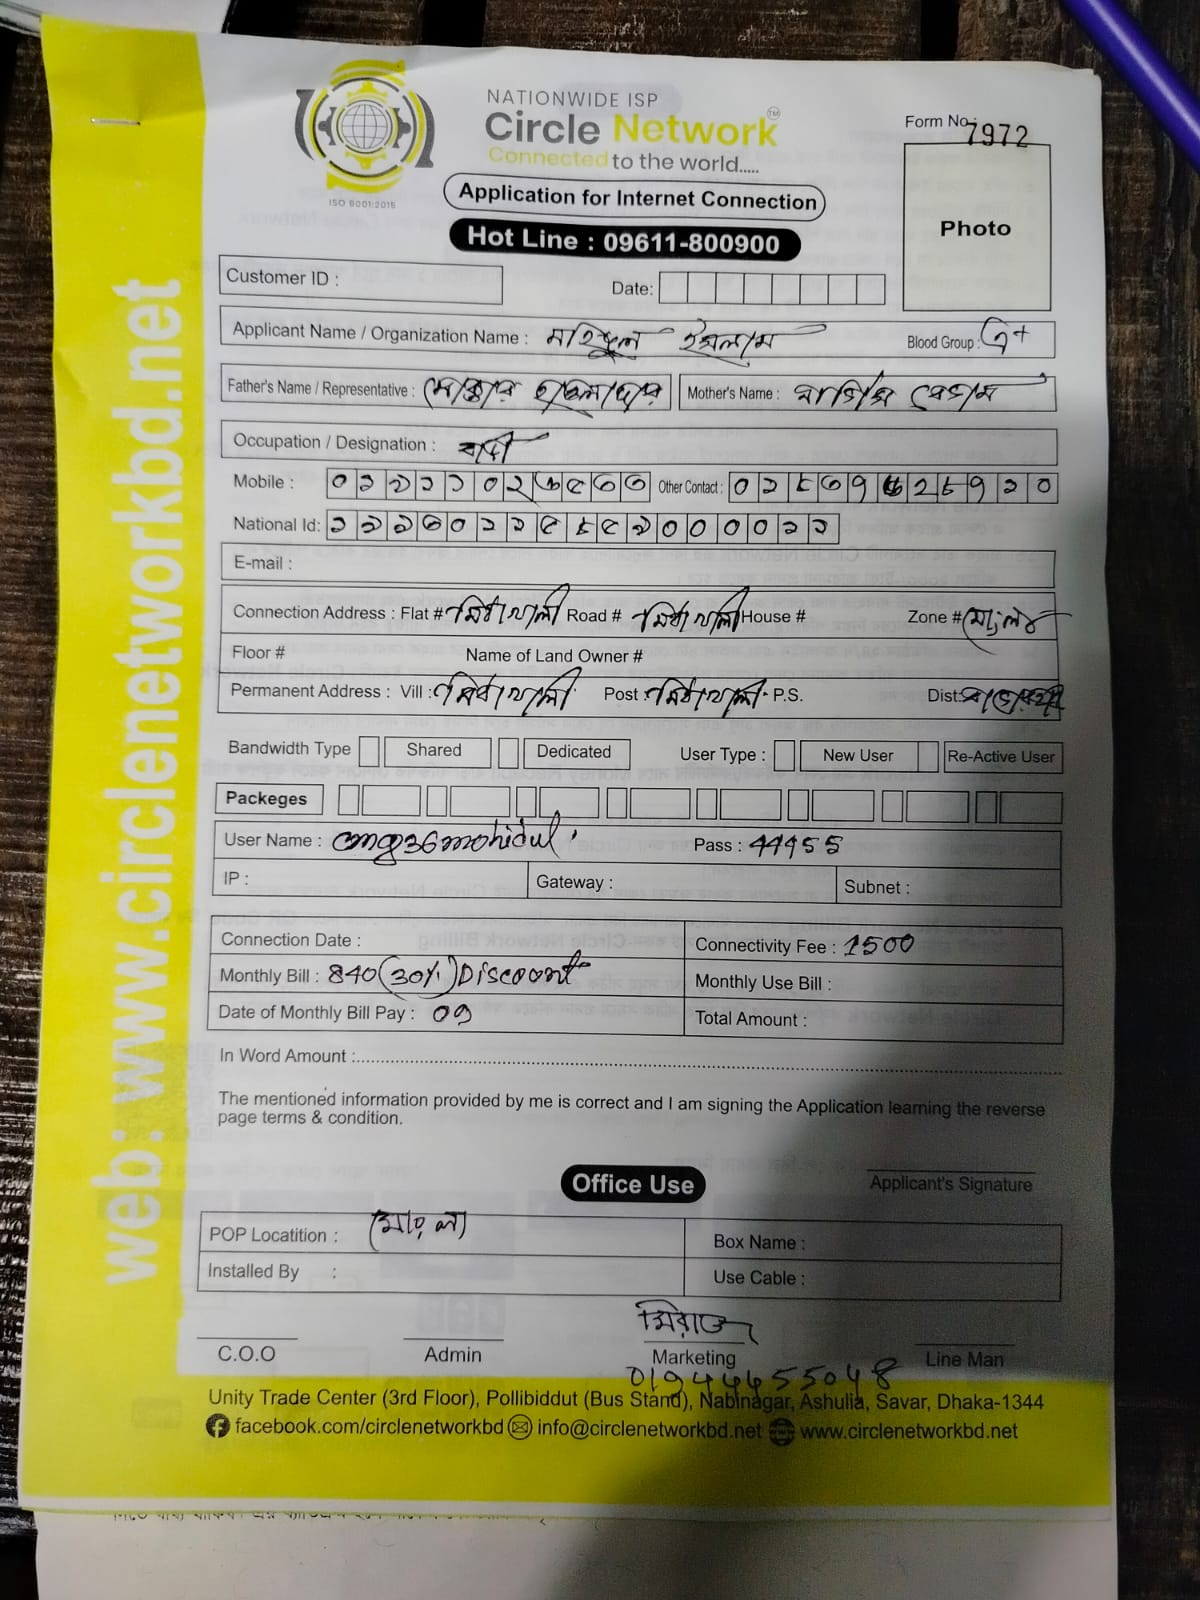 NATIONWIDE ISP
Circle Network TM
Connected to the world.....
ISO 9001:2015
Form No.: 7972
Photo
Application for Internet Connection
Hot Line : 09611-800900
Customer ID :
Date:
Applicant Name / Organization Name : মহিদুল ইসলাম Blood Group :
Father's Name / Representative : Mother's Name : বেগম
Occupation / Designation :
Mobile : Other Contact :
National Id:
E-mail :
Connection Address : Flat # মিঠাখালী Road # মিঠাখালী House # Zone # মোংলা
Floor # Name of Land Owner #
Permanent Address : Vill : মিঠাখালী Post : মিঠাখালী P.S. Dist: বাগেরহাট
Bandwidth Type Shared Dedicated User Type : New User Re-Active User
Packeges
User Name : Pass : 44455
IP : Gateway : Subnet :
Connection Date : Connectivity Fee : 1500
Monthly Bill : 840 (30%) Discount Monthly Use Bill :
Date of Monthly Bill Pay : 09 Total Amount :
In Word Amount :
The mentioned information provided by me is correct and I am signing the Application learning the reverse
page terms & condition.
Applicant's Signature
Office Use
POP Locatition : মোংলা Box Name :
Installed By : Use Cable :
মিরাজ
C.O.O Admin Marketing Line Man
01944655048
Unity Trade Center (3rd Floor), Pollibiddut (Bus Stand), Nabinagar, Ashulia, Savar, Dhaka-1344
facebook.com/circlenetworkbd info@circlenetworkbd.net www.circlenetworkbd.net
web: www.circlenetworkbd.net